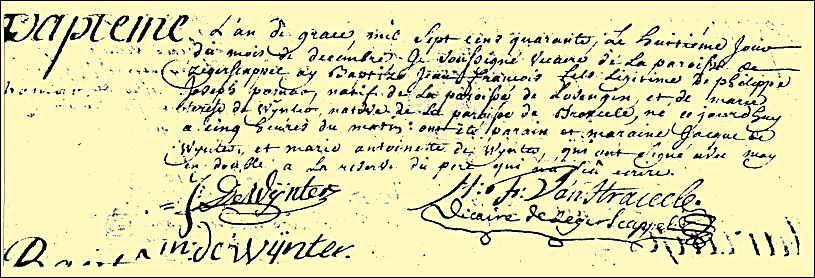 Bapteme
L'an de grace, mil sept cens quarante, le huitiéme Jour
du mois de decembre, Je soussigné vicaire de la paroisse de
Zegerscappel ay Baptizé Jean francois fils Legitime De philippe
Joseph natif de la paroisse de et de marie
terese de Wynter, native de la paroisse de Broxeele, né ce jourdhuy
a cinq heures du matin: ont été parain et maraine Jacque de
Wynter, et marie antoinette de Wynter, qui ont signé avec moy
en double a la reserve du pere qui na sçu ecrire.
J: DeWÿnter
H: F: Van Straceele.
Vicaire de Zegerscappel
m: de Wÿnter.